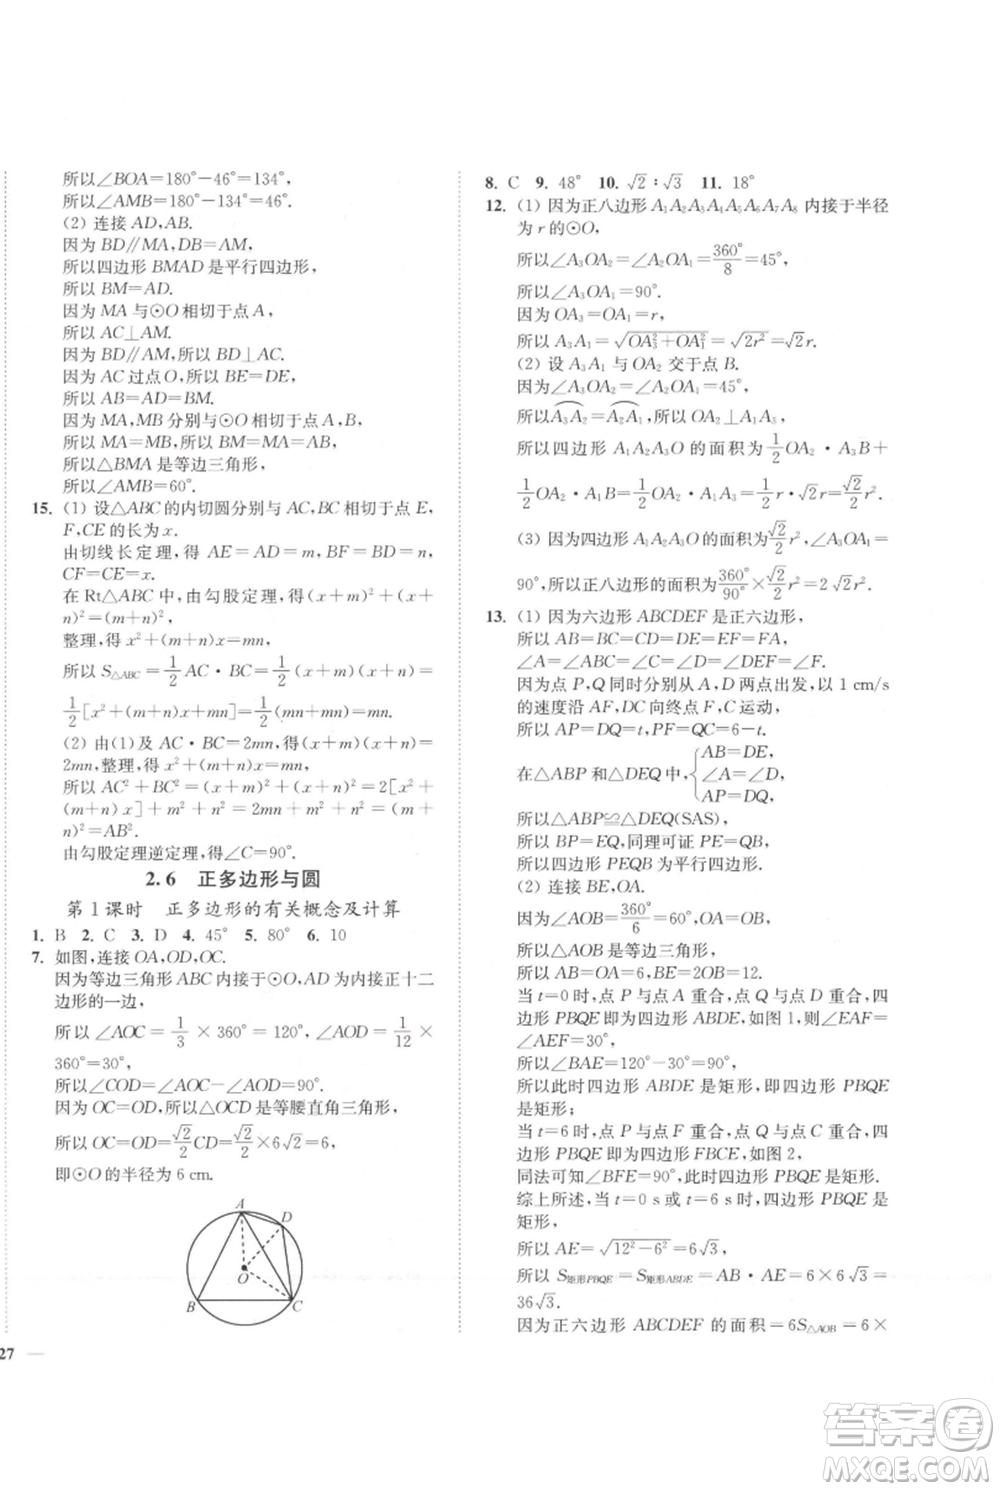 所以∠BOA=180°-46°=134°,
所以∠AMB=180°-134°=46°.
(2) 连接 AD,AB.
因为 BD∥MA,DB=AM,
所以四边形 BMAD 是平行四边形,
所以 BM=AD.
因为 MA 与⊙O 相切于点 A,
所以 AC⊥AM.
因为 BD∥AM,所以 BD⊥AC.
因为 AC 过点 O,所以 BE=DE,
所以 AB=AD=BM.
因为 MA,MB 分别与⊙O 相切于点 A,B,
所以 MA=MB,所以 BM=MA=AB,
所以△BMA 是等边三角形,
所以∠AMB=60°.
15. (1) 设△ABC 的内切圆分别与 AC,BC 相切于点 E,
F,CE 的长为 x.
由切线长定理,得 AE=AD=m,BF=BD=n,
CF=CE=x.
在 Rt△ABC 中,由勾股定理,得(x+m)²+(x+
n)²=(m+n)²,
整理,得 x²+(m+n)x=mn,
所以 S△ABC=1/2 AC·BC=1/2(x+m)(x+n)=
1/2[x²+(m+n)x+mn]=1/2(mn+mn)=mn.
(2) 由(1)及 AC·BC=2mn,得(x+m)(x+n)=
2mn,整理,得 x²+(m+n)x=mn,
所以 AC²+BC²=(x+m)²+(x+n)²=2[x²+
(m+n)x]+m²+n²=2mn+m²+n²=(m+
n)²=AB².
由勾股定理逆定理,得∠C=90°.
2.6 正多边形与圆
第1课时 正多边形的有关概念及计算
1. B 2. C 3. D 4. 45° 5. 80° 6. 10
7. 如图,连接 OA,OD,OC.
因为等边三角形 ABC 内接于⊙O,AD 为内接正十二
边形的一边,
所以∠AOC=1/3×360°=120°,∠AOD=1/12×
360°=30°,
所以∠COD=∠AOC-∠AOD=90°.
因为 OC=OD,所以△OCD 是等腰直角三角形,
所以 OC=OD=√2/2 CD=√2/2×6√2=6,
即⊙O 的半径为 6 cm.
A
D
O
B
C
27
8. C 9. 48° 10. √2∶√3 11. 18°
12. (1) 因为正八边形 A₁A₂A₃A₄A₅A₆A₇A₈ 内接于半径
为 r 的⊙O,
所以∠A₃OA₂=∠A₂OA₁=360°/8=45°,
所以∠A₃OA₁=90°.
因为 OA₃=OA₁=r,
所以 A₃A₁=√(OA₃²+OA₁²)=√(2r²)=√2r.
(2) 设 A₃A₁ 与 OA₂ 交于点 B.
因为∠A₃OA₂=∠A₂OA₁=45°,
所以A₃A₂=A₂A₁,所以 OA₂⊥A₁A₃,
所以四边形 A₁A₂A₃O 的面积为1/2 OA₂·A₃B+
1/2 OA₂·A₁B=1/2 OA₂·A₃A₁=1/2 r·√2r=√2/2 r².
(3) 因为四边形 A₁A₂A₃O 的面积为√2/2 r²,∠A₃OA₁=
90°,所以正八边形的面积为360°/90°×√2/2 r²=2√2r².
13. (1) 因为六边形 ABCDEF 是正六边形,
所以 AB=BC=CD=DE=EF=FA,
∠A=∠ABC=∠C=∠D=∠DEF=∠F.
因为点 P,Q 同时分别从 A,D 两点出发,以 1 cm/s
的速度沿 AF,DC 向终点 F,C 运动,
所以 AP=DQ=t,PF=QC=6-t.
AB=DE,
在△ABP 和△DEQ 中, ∠A=∠D,
AP=DQ,
所以△ABP≌△DEQ(SAS),
所以 BP=EQ,同理可证 PE=QB,
所以四边形 PEQB 为平行四边形.
(2) 连接 BE,OA.
因为∠AOB=360°/6=60°,OA=OB,
所以△AOB 是等边三角形,
所以 AB=OA=6,BE=2OB=12.
当 t=0 时,点 P 与点 A 重合,点 Q 与点 D 重合,四
边形 PBQE 即为四边形 ABDE,如图 1,则∠EAF=
∠AEF=30°,
所以∠BAE=120°-30°=90°,
所以此时四边形 ABDE 是矩形,即四边形 PBQE
是矩形;
当 t=6 时,点 P 与点 F 重合,点 Q 与点 C 重合,四
边形 PBQE 即为四边形 FBCE,如图 2,
同法可知∠BFE=90°,此时四边形 PBQE 是矩形.
综上所述,当 t=0 s 或 t=6 s 时,四边形 PBQE 是
矩形,
所以 AE=√(12²-6²)=6√3,
所以 S矩形PBQE=S矩形ABDE=AB·AE=6×6√3=
36√3.
因为正六边形 ABCDEF 的面积=6S△AOB=6×
答案圈
MXQE.COM